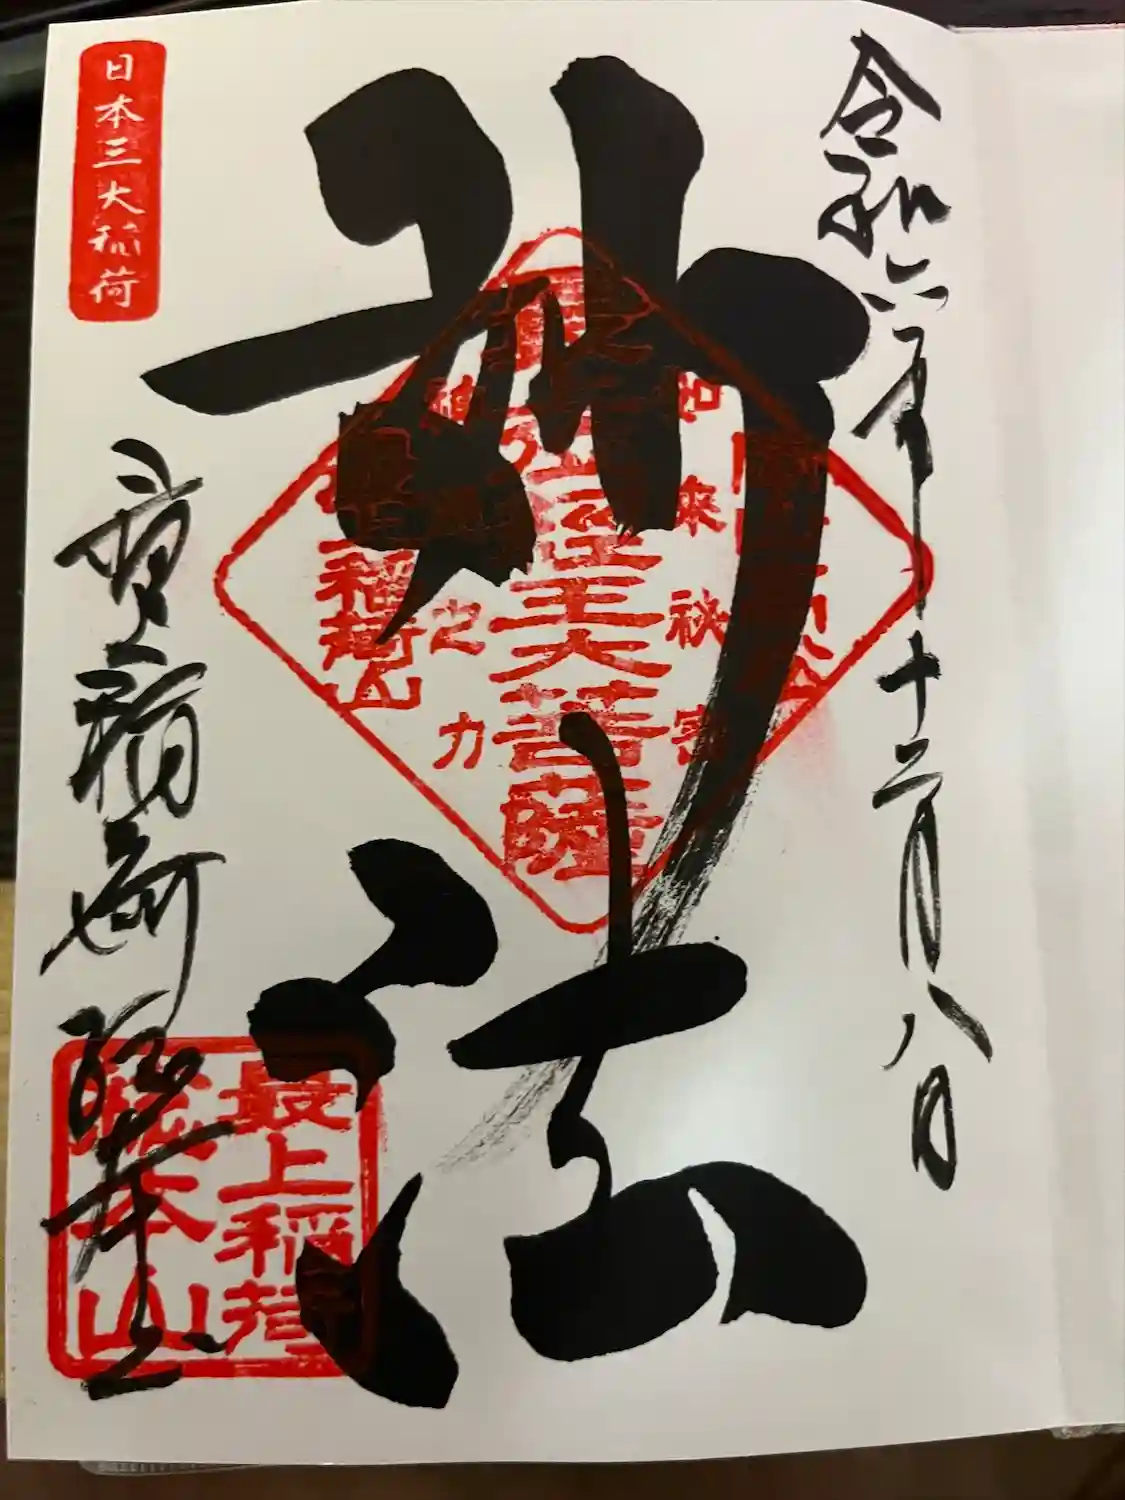 令和六年十二月八日
妙法
如来秘密
最上位經王大菩薩
神通之力
稲荷山
日本三大稲荷
最上稲荷 総本山
最上稲荷
総本山